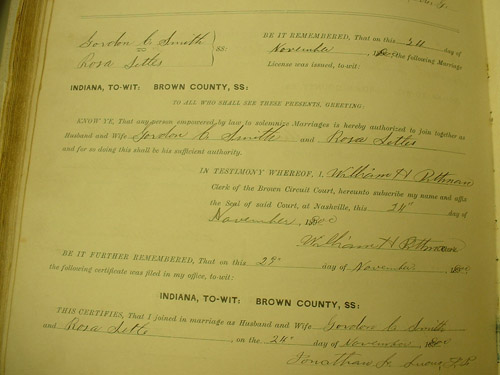 Gordon C Smith
Rosa Settes
SS:
BE IT REMEMBERED, That on this 24 day of
November, the following Marriage
License was issued, to-wit:
INDIANA, TO-WIT: BROWN COUNTY, SS:
TO ALL WHO SHALL SEE THESE PRESENTS, GREETING:
KNOW YE, That any person empowered by law to solemnize Marriages is hereby authorized to join together as
Husband and Wife Gordon C Smith and Rosa Settes
and for so doing this shall be his sufficient authority.
IN TESTIMONY WHEREOF, I, William H Pittman
Clerk of the Brown Circuit Court, hereunto subscribe my name and affix
the Seal of said Court, at Nashville, this 24" day of
November, 1800
William H Pittman
BE IT FURTHER REMEMBERED, That on this 29" day of November,
the following certificate was filed in my office, to-wit:
INDIANA, TO-WIT: BROWN COUNTY, SS:
THIS CERTIFIES, That I joined in marriage as Husband and Wife Gordon C Smith
and Rosa Sette, on the 24" day of November,
Jonathan